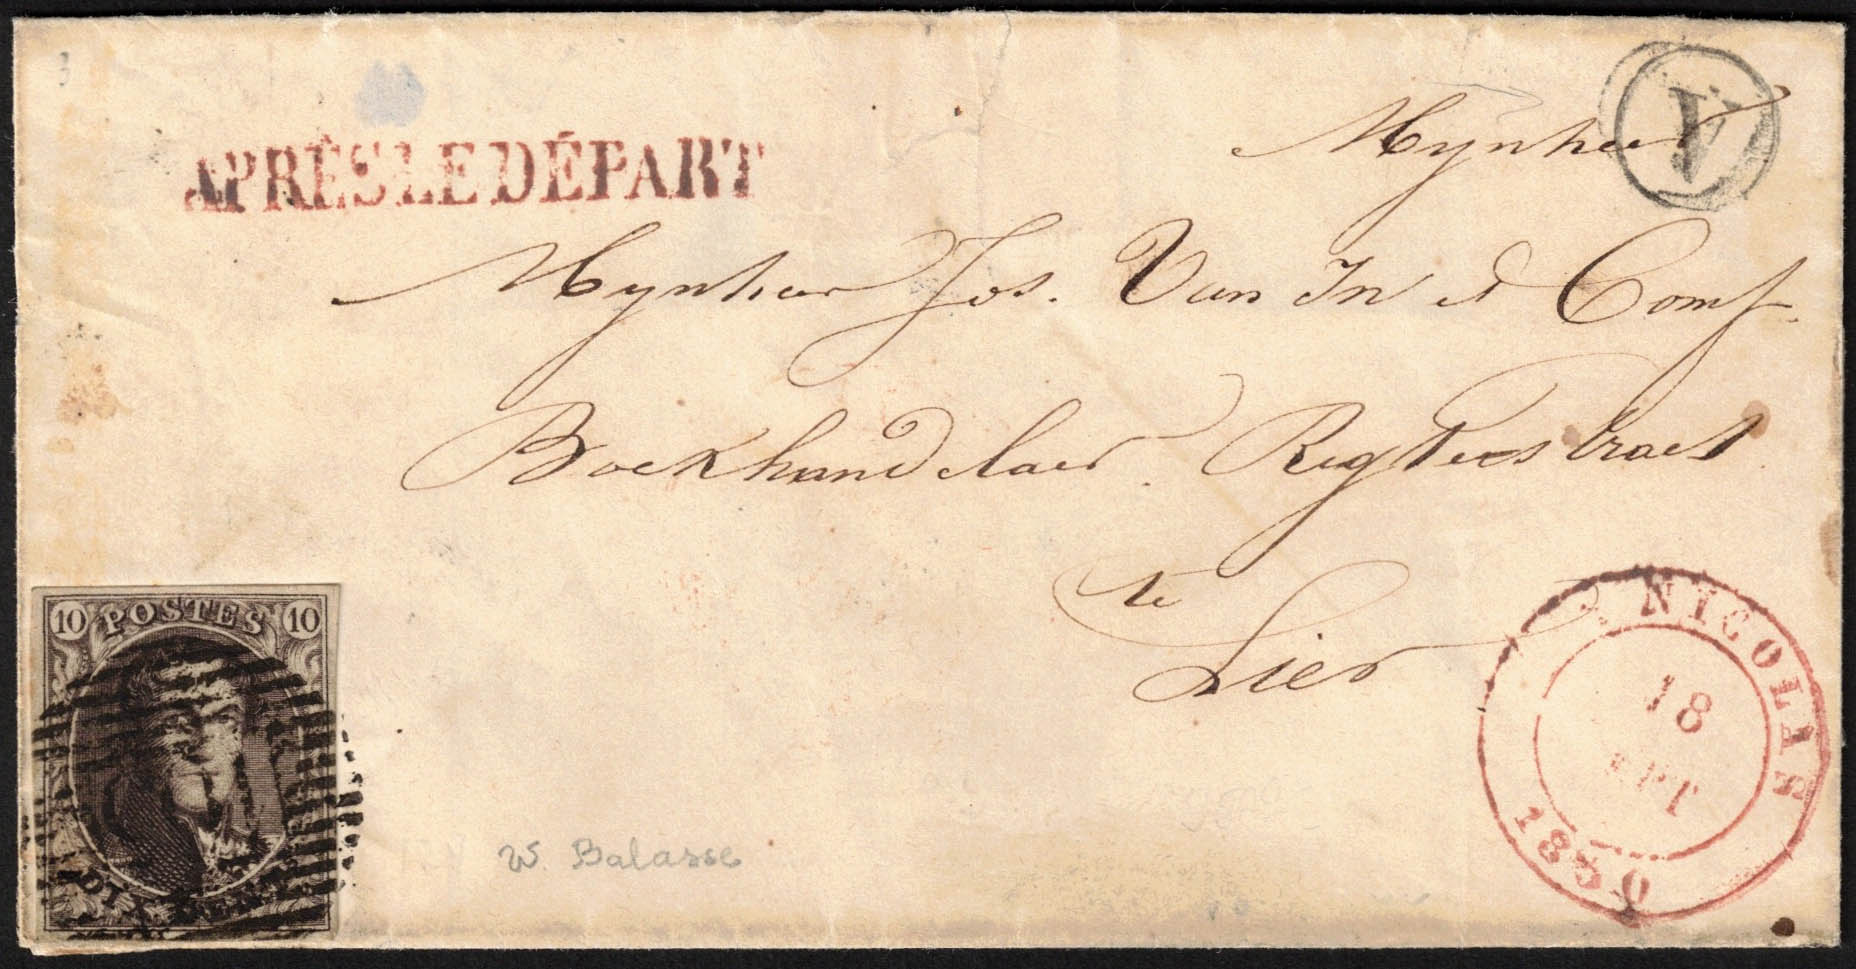 APRÈS LE DÉPART
A
Mynheer
Mynheer Jos. Van In et Comp.
Boekhandelaer Regtestraet
te
Lier
10 POSTES 10
W. Balasse
NICOLAS
18
SEPT
1850